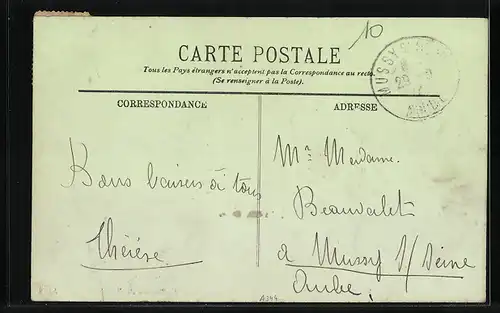 10
CARTE POSTALE
Tous les Pays étrangers n'acceptent pas la Correspondance au recto.
(Se renseigner à la Poste).
CORRESPONDANCE
ADRESSE
MUSSY S
AUBE
Bons baisers à tous
Thérèse
Mr Madame
Beauvalet
à Mussy S/Seine
Aube
A344